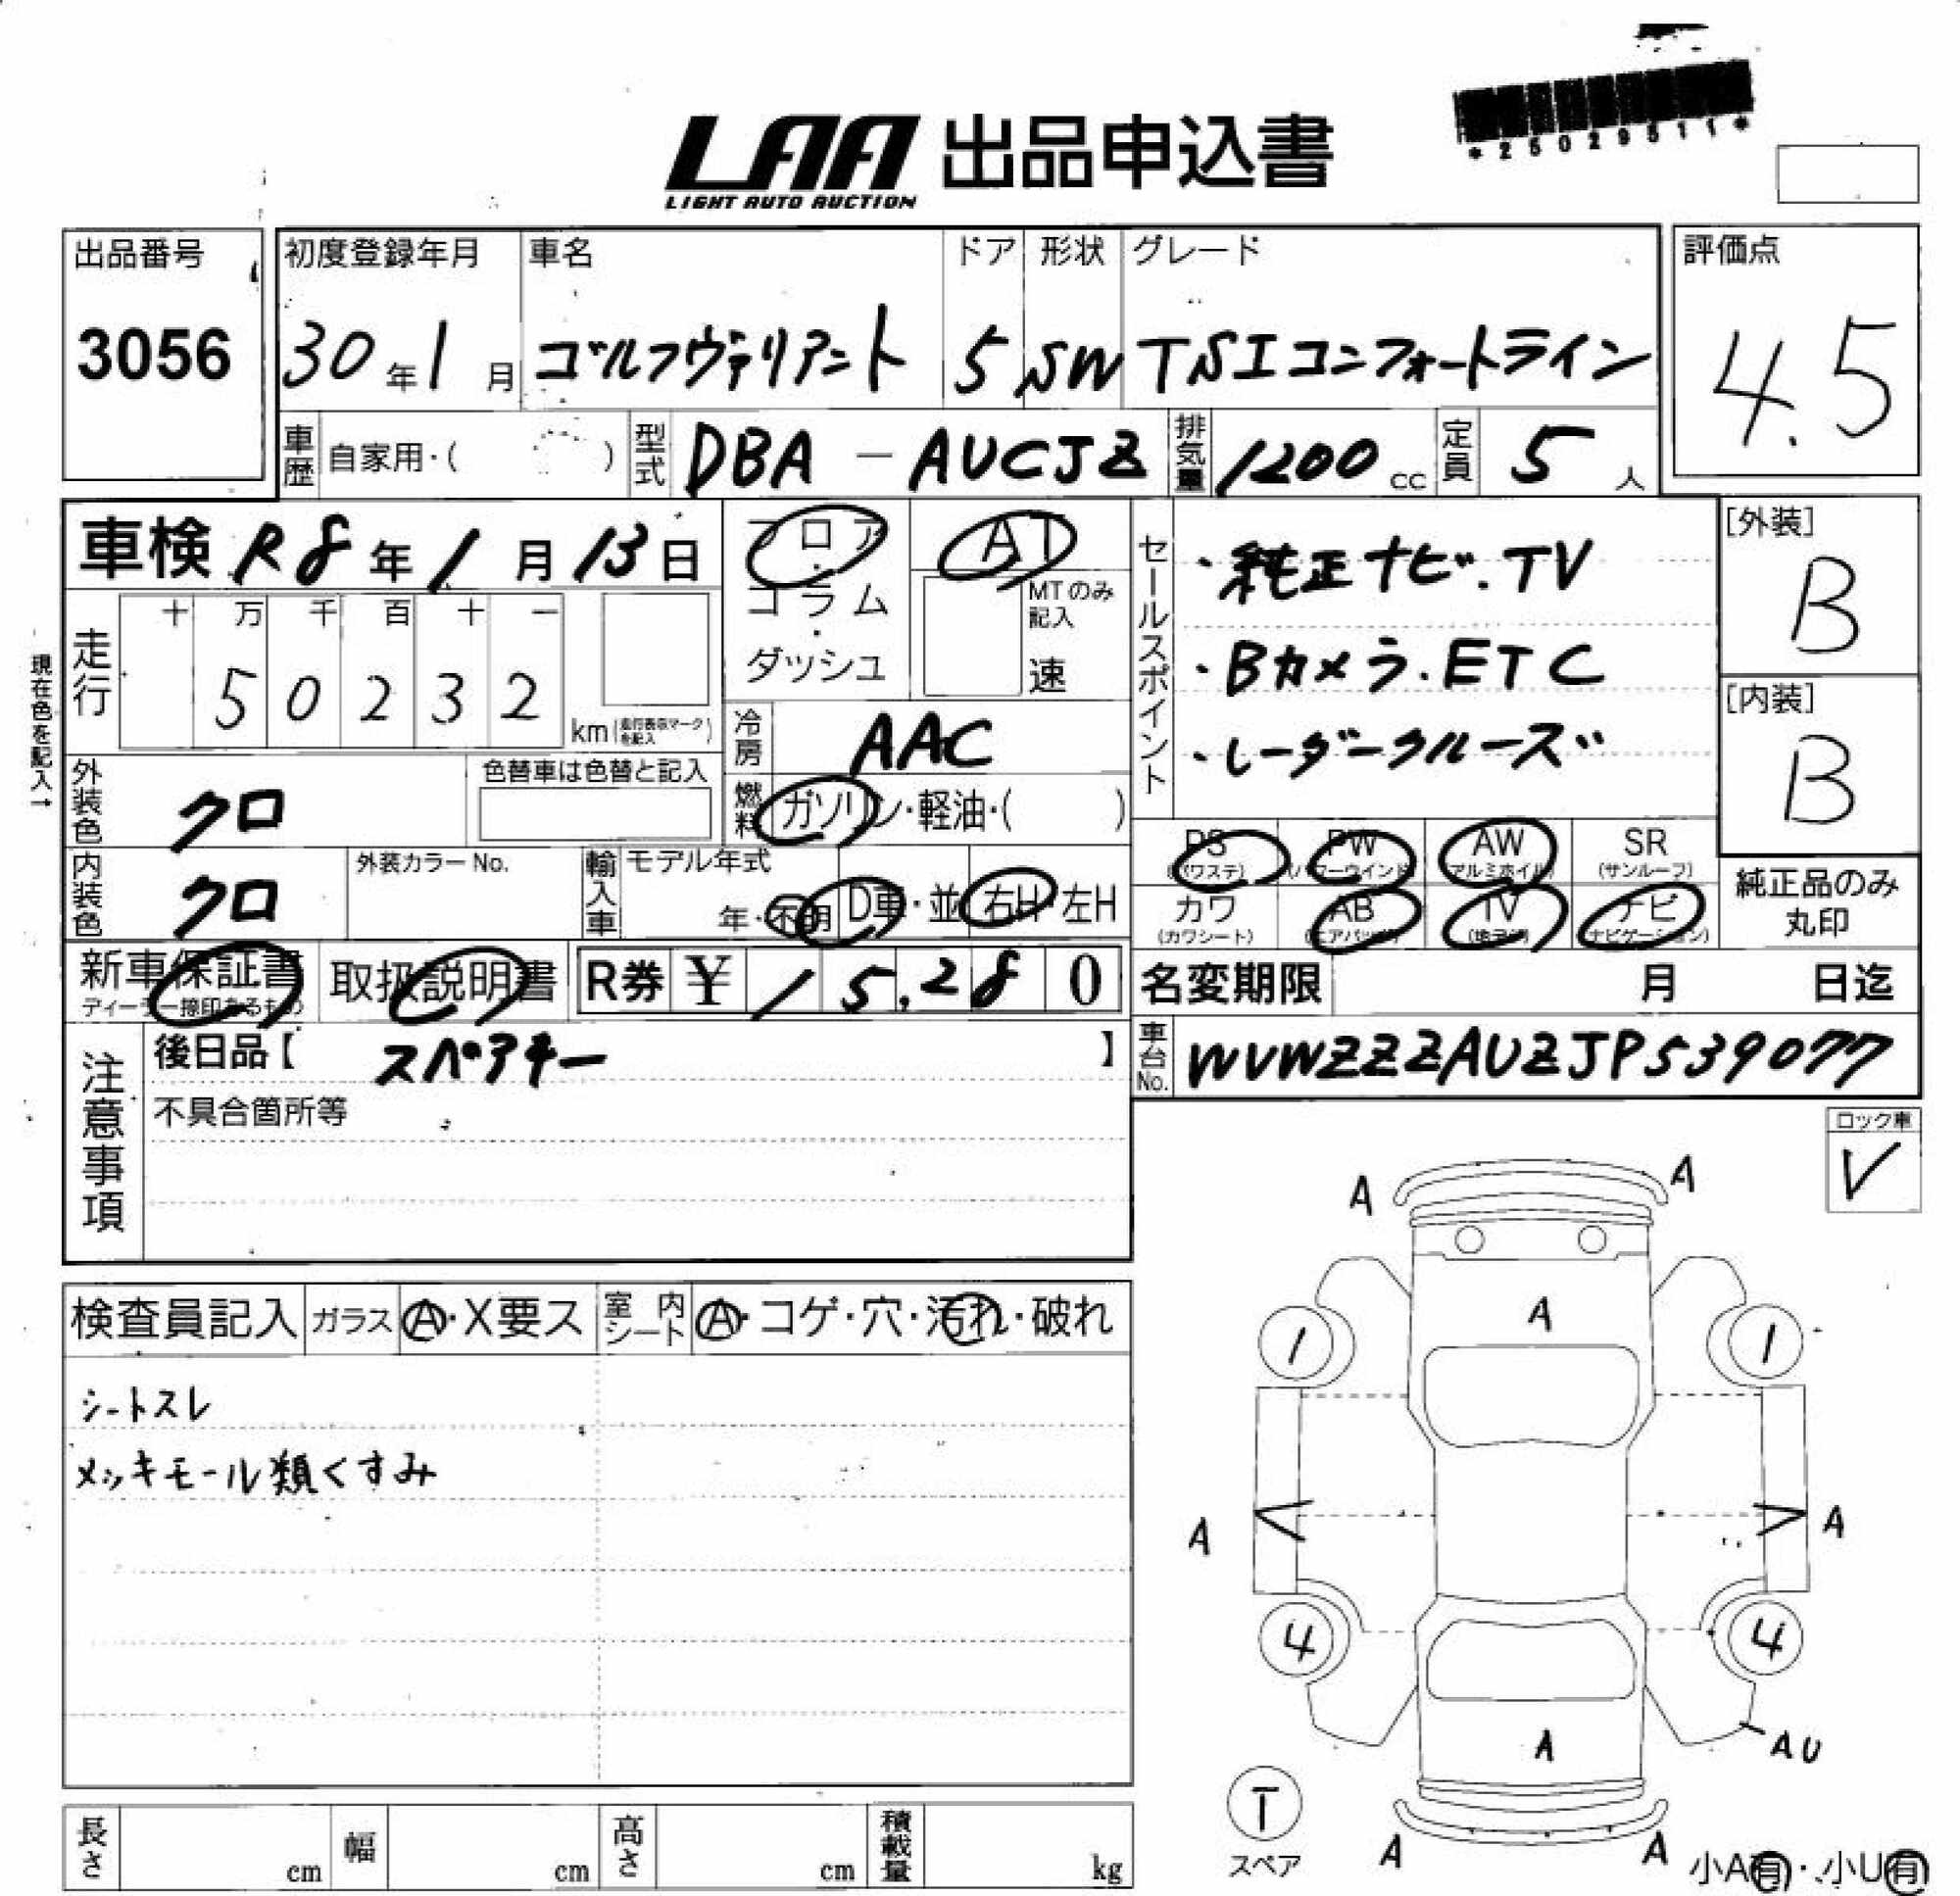 LAA 出品申込書
LIGHT AUTO AUCTION
*25029511*
出品番号
3056
初度登録年月
30年1月
車名
ゴルフヴァリアント
ドア
5
形状
SW
グレード
TSIコンフォートライン
評価点
4.5
車歴 自家用・( )
型式 DBA-AUCJZ
排気量 1200cc
定員 5人
車検 R8年1月13日
フロア・コラム・ダッシュ
AT
MTのみ記入
速
セールスポイント
・純正ナビ.TV
・Bカメラ.ETC
・レーダークルーズ
[外装]
B
[内装]
B
現在色を記入→
走行
十 万 千 百 十 一
5 0 2 3 2
km(走行表示マークを記入)
冷房 AAC
外装色 クロ
色替車は色替と記入
燃料 ガソリン・軽油・( )
内装色 クロ
外装カラーNo.
輸入車 モデル年式
年・不明 D車・並 右H・左H
PS (パワステ)
PW (パワーウインド)
AW (アルミホイル)
SR (サンルーフ)
カワ (カワシート)
AB (エアバッグ)
TV
ナビ (ナビゲーション)
純正品のみ丸印
新車保証書
取扱説明書
R券 ¥ 15,280
名変期限 月 日迄
注意事項
後日品【 スペアキー 】
不具合箇所等
車台No. WVWZZZAUZJP539077
ロック車
✓
検査員記入 ガラス A・X要ス 室内シート A・コゲ・穴・汚れ・破れ
シートスレ
メッキモール類くすみ
A A
A
1 1
A A
4 4
A AU
T
スペア
A A
小A有・小U有
長さ cm 幅 cm 高さ cm 積載量 kg